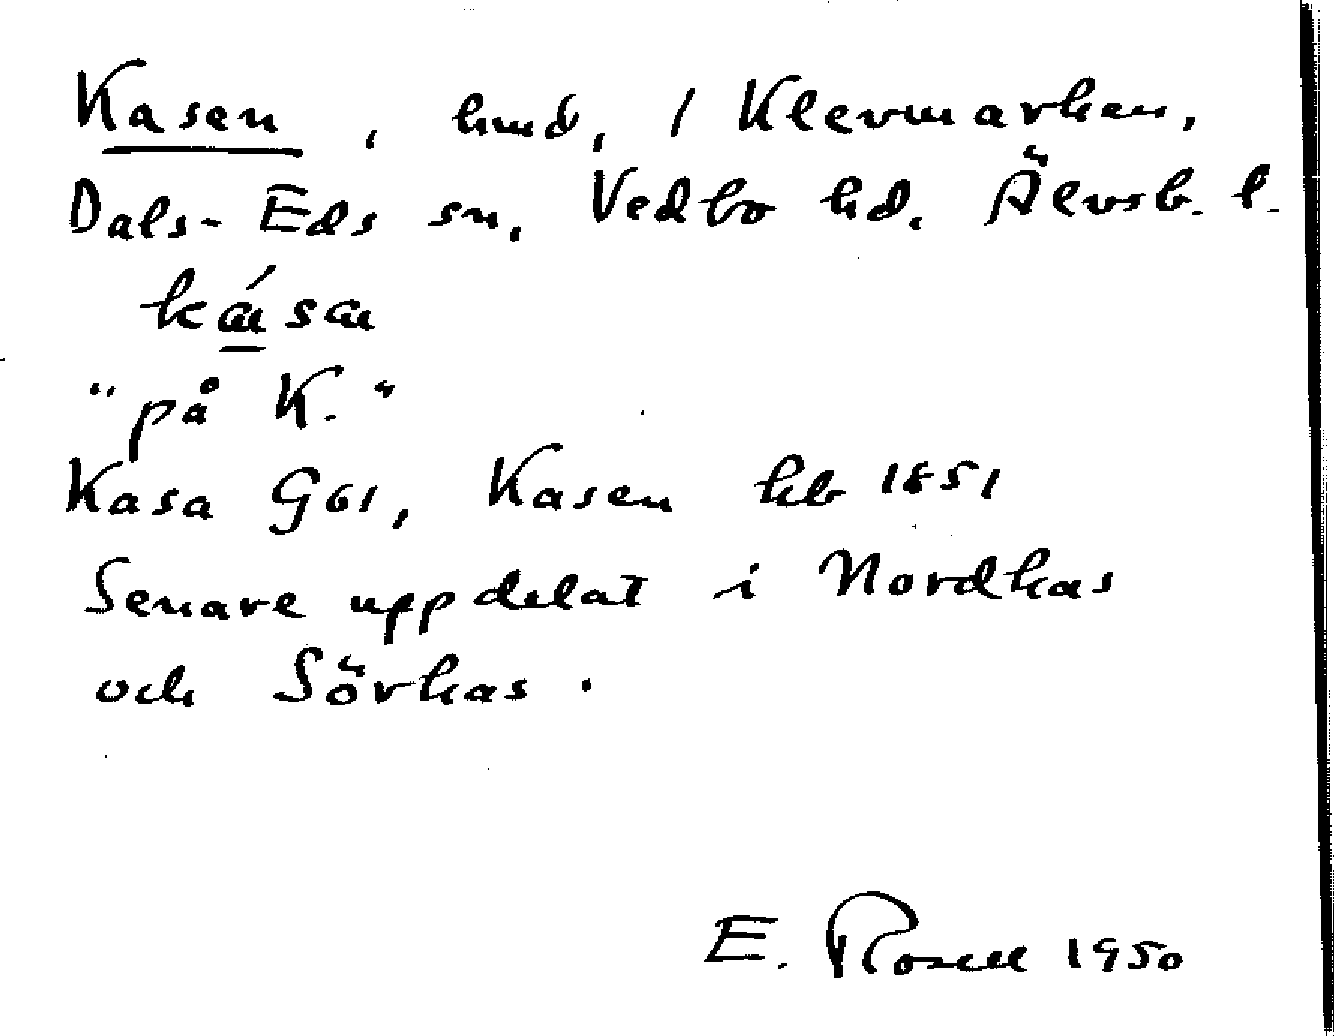 Kasen, hmd, 1 Klevmarken,
Dals-Eds sn, Vedbo hd. Älvsb. l.
kása
"på K."
Kasa G61, Kasen hb 1851
Senare uppdelat i Nordkas
och Sörkas.
E. Rosell 1950